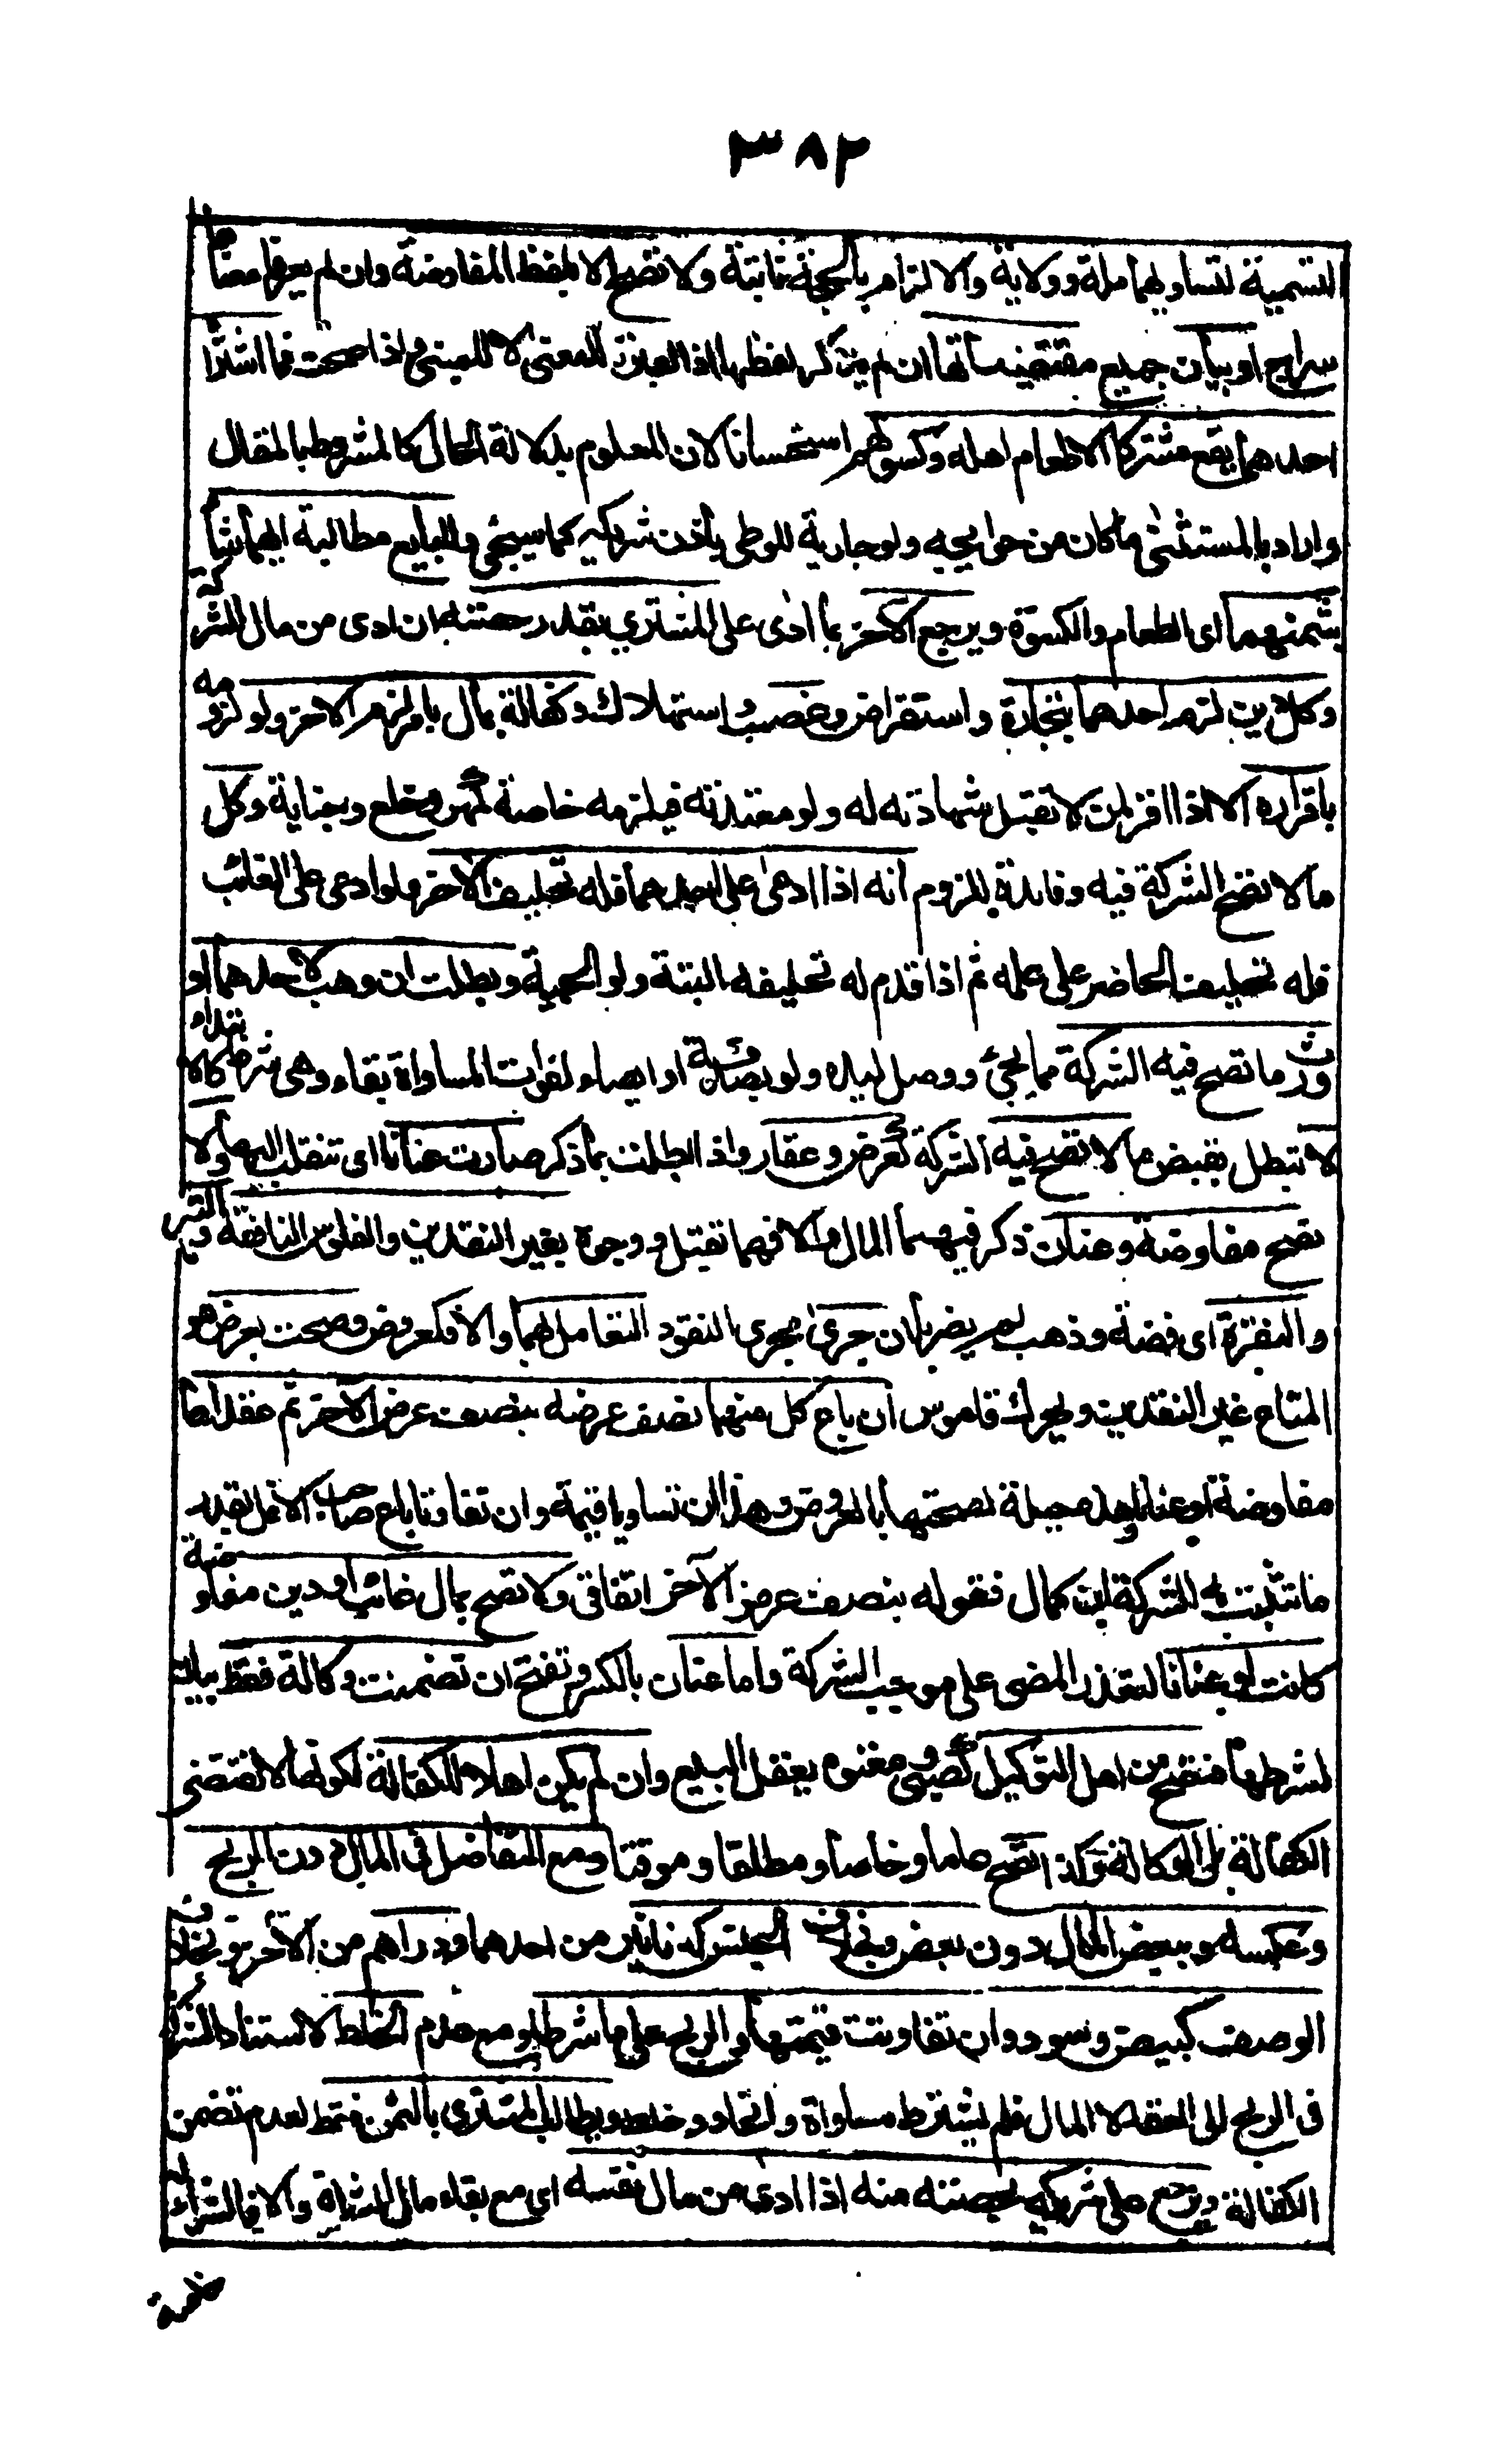 ٣٨٢
التسمية لتساويهما ملة وولاية والالتزام بالجزية ثابتة ولا تصح الا بلفظ المفاوضة وان لم يعرفا معناها
سراج او بيان جميع مقتضياتها ان لم يذكر لفظها اذ العبرة للمعنى لا للمبنى واذا صحت فما اشترا
احدهما يقع مشتركا الا طعام اهله وكسوتهم استحسانا لان المعلوم بدلالة الحال كالمشروط بالمقال
واراد بالمستثنى ما كان من حوايجه ولو جارية للوطى باذن شريكه كما سيجئ وللبايع مطالبة ايهما شاء
بثمنهما اى الطعام والكسوة ويرجع الآخر بما ادى على المشتري بقدر حصته ان ادى من مال الشركة
وكل دين لزم احدهما بتجارة واستقراض وغصب واستهلاك وكفالة بمال بامر لزم الاخر ولو لزومه
باقراره الا اذا اقر لمن لا تقبل شهادته له ولو معتدته فيلزمه خاصة كمهر وخلع وجناية وكل
ما لا تصح الشركة فيه وفايدة اللزوم انه اذا ادعى على احدهما فله تحليف الآخر ولو ادعى على الغائب
فله تحليف الحاضر على علمه ثم اذا قدم له تحليفه البتة ولوالجية وبطلت ان وهب لاحدهما او
ورث ما تصح فيه الشركة مما يجئ ووصل ليده ولو بصدقة او ايصاء لفوات المساواة بقاء وهى شرط كالابتداء
لا تبطل بقبض ما لا تصح فيه الشركة كعرض وعقار واذا بطلت بما ذكر صارت عنانا اى تنقلب اليها ولا
تصح مفاوضة وعنان ذكر فيهما المال والا فهما تقبل ووجوه بغير النقدين والفلوس النافقة والتبر
والنقرة اى فضة وذهب لم يضربا ان جرى مجرى النقود التعامل بهما والا فكعروض وصحت بعرض هو
المتاع غير النقدين ويحرك قاموس ان باع كل منهما نصف عرضه بنصف عرض الآخر ثم عقداها
مفاوضة او عنانا وهذه حيلة لصحتها بالعروض وهذا ان تساويا قيمة وان تفاوتا باع صاحب الاقل بقدر
ما تثبت به الشركة ابن كمال فقوله بنصف عرض الآخر اتفاقى ولا تصح بمال غائب او دين مفاوضة
كانت او عنانا لتعذر المضى على موجب الشركة واما عنان بالكسر وتفتح ان تضمنت وكالة فقط بيان
لشرطها فتصح من اهل التوكيل كصبى ومعتوه يعقل البيع وان لم يكن اهلا للكفالة لكونها لا تقتضى
الكفالة بل الوكالة وكذا تصح عاما وخاصا ومطلقا وموقتا ومع التفاضل فى المال دون الربح
وعكسه وببعض المال دون بعض وبخلاف الجنس كدنانير من احدهما ودراهم من الآخر وبخلاف
الوصف كبيض وسود وان تفاوتت قيمتهما والربح على ما شرطا ومع عدم الخلط لاستناد الشركة
فى الربح الى العقد لا المال فلم يشترط مساواة واتحاد وخلط ويطالب المشترى بالثمن فقط لعدم تضمن
الكفالة ويرجع على شريكه بحصته منه اذا ادى من مال نفسه اى مع بقاء مال الشركة والا فالشراء له